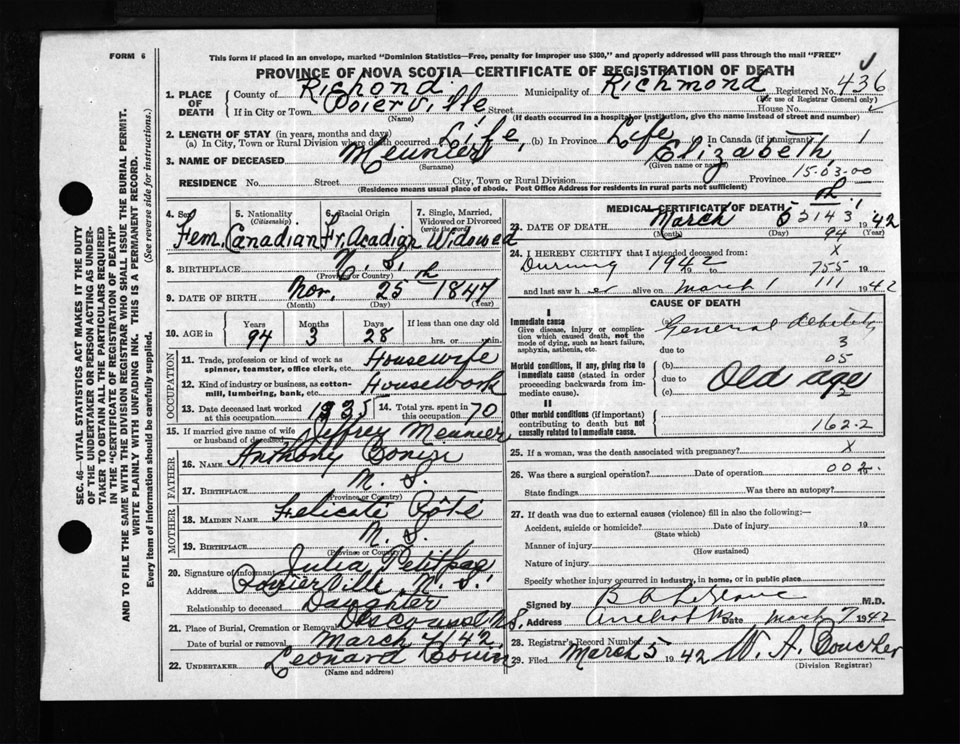 FORM 6
This form if placed in an envelope, marked "Dominion Statistics—Free, penalty for improper use $300," and properly addressed will pass through the mail "FREE"
PROVINCE OF NOVA SCOTIA—CERTIFICATE OF REGISTRATION OF DEATH
1. PLACE OF DEATH County of Richond Municipality of Richmond Registered No. 436
(For use of Registrar General only)
If in City or Town Poierville Street House No.
(Name) (If death occurred in a hospital or institution, give the name instead of street and number)
2. LENGTH OF STAY (in years, months and days)
(a) In City, Town or Rural Division where death occurred Life, (b) In Province Life (c) In Canada (if immigrant) 1
3. NAME OF DECEASED Meunier Elizabeth
(Surname) (Given name or names)
15-03-00
RESIDENCE No. Street City, Town or Rural Division Province
(Residence means usual place of abode. Post Office Address for residents in rural parts not sufficient)
4. Sex 5. Nationality (Citizenship) 6. Racial Origin 7. Single, Married, Widowed or Divorced (write the word)
Fem. Canadian Fr. Acadian Widowed
8. BIRTHPLACE N. S.
(Province or Country)
9. DATE OF BIRTH Nov. 25th 1847
(Month) (Day) (Year)
10. AGE in Years Months Days If less than one day
94 3 28 hrs. or min.
OCCUPATION
11. Trade, profession or kind of work as spinner, teamster, office clerk, etc. Housewife
12. Kind of industry or business, as cotton-mill, lumbering, bank, etc. Housework
13. Date deceased last worked at this occupation 1935 14. Total yrs. spent in this occupation 70
15. If married give name of wife or husband of deceased Jeffrey Meunier
FATHER
16. NAME Anthony
17. BIRTHPLACE N. S.
(Province or Country)
MOTHER
18. MAIDEN NAME Felicate
19. BIRTHPLACE N. S.
(Province or Country)
20. Signature of informant Julia Petitpas
Address N. S.
Relationship to deceased Daughter
21. Place of Burial, Cremation or Removal N.S.
Date of burial or removal March 4/42
22. UNDERTAKER Leonard
(Name and address)
MEDICAL CERTIFICATE OF DEATH
23. DATE OF DEATH March 1942
(Month) (Day) (Year)
94
24. I HEREBY CERTIFY that I attended deceased from: X
During 1942 19 to 755 19
and last saw h er alive on March 1 111 1942
CAUSE OF DEATH
I
Immediate cause
Give disease, injury or complication which caused death, not the mode of dying, such as heart failure, asphyxia, asthenia, etc.
(a) General debility
due to 3
Morbid conditions, if any, giving rise to immediate cause (stated in order proceeding backwards from immediate cause).
(b) 05
due to Old age
(c) 2
II
Other morbid conditions (if important) contributing to death but not causally related to immediate cause.
162.2
25. If a woman, was the death associated with pregnancy? X
26. Was there a surgical operation? Date of operation 002. 19
State findings Was there an autopsy?
27. If death was due to external causes (violence) fill in also the following:—
Accident, suicide or homicide? Date of injury 19
(State which)
Manner of injury
(How sustained)
Nature of injury
Specify whether injury occurred in industry, in home, or in public place
Signed by M.D.
Address Date March 7 1942
28. Registrar's Record Number
29. Filed March 5 1942 W. A. Boucher
(Division Registrar)
SEC. 46—VITAL STATISTICS ACT MAKES IT THE DUTY
OF THE UNDERTAKER OR PERSON ACTING AS UNDER-
TAKER TO OBTAIN ALL THE PARTICULARS REQUIRED
IN THE "CERTIFICATE OF REGISTRATION OF DEATH"
AND TO FILE THE SAME WITH THE DIVISION REGISTRAR WHO SHALL ISSUE THE BURIAL PERMIT.
WRITE PLAINLY WITH UNFADING INK. THIS IS A PERMANENT RECORD.
Every item of information should be carefully supplied. (See reverse side for instructions.)